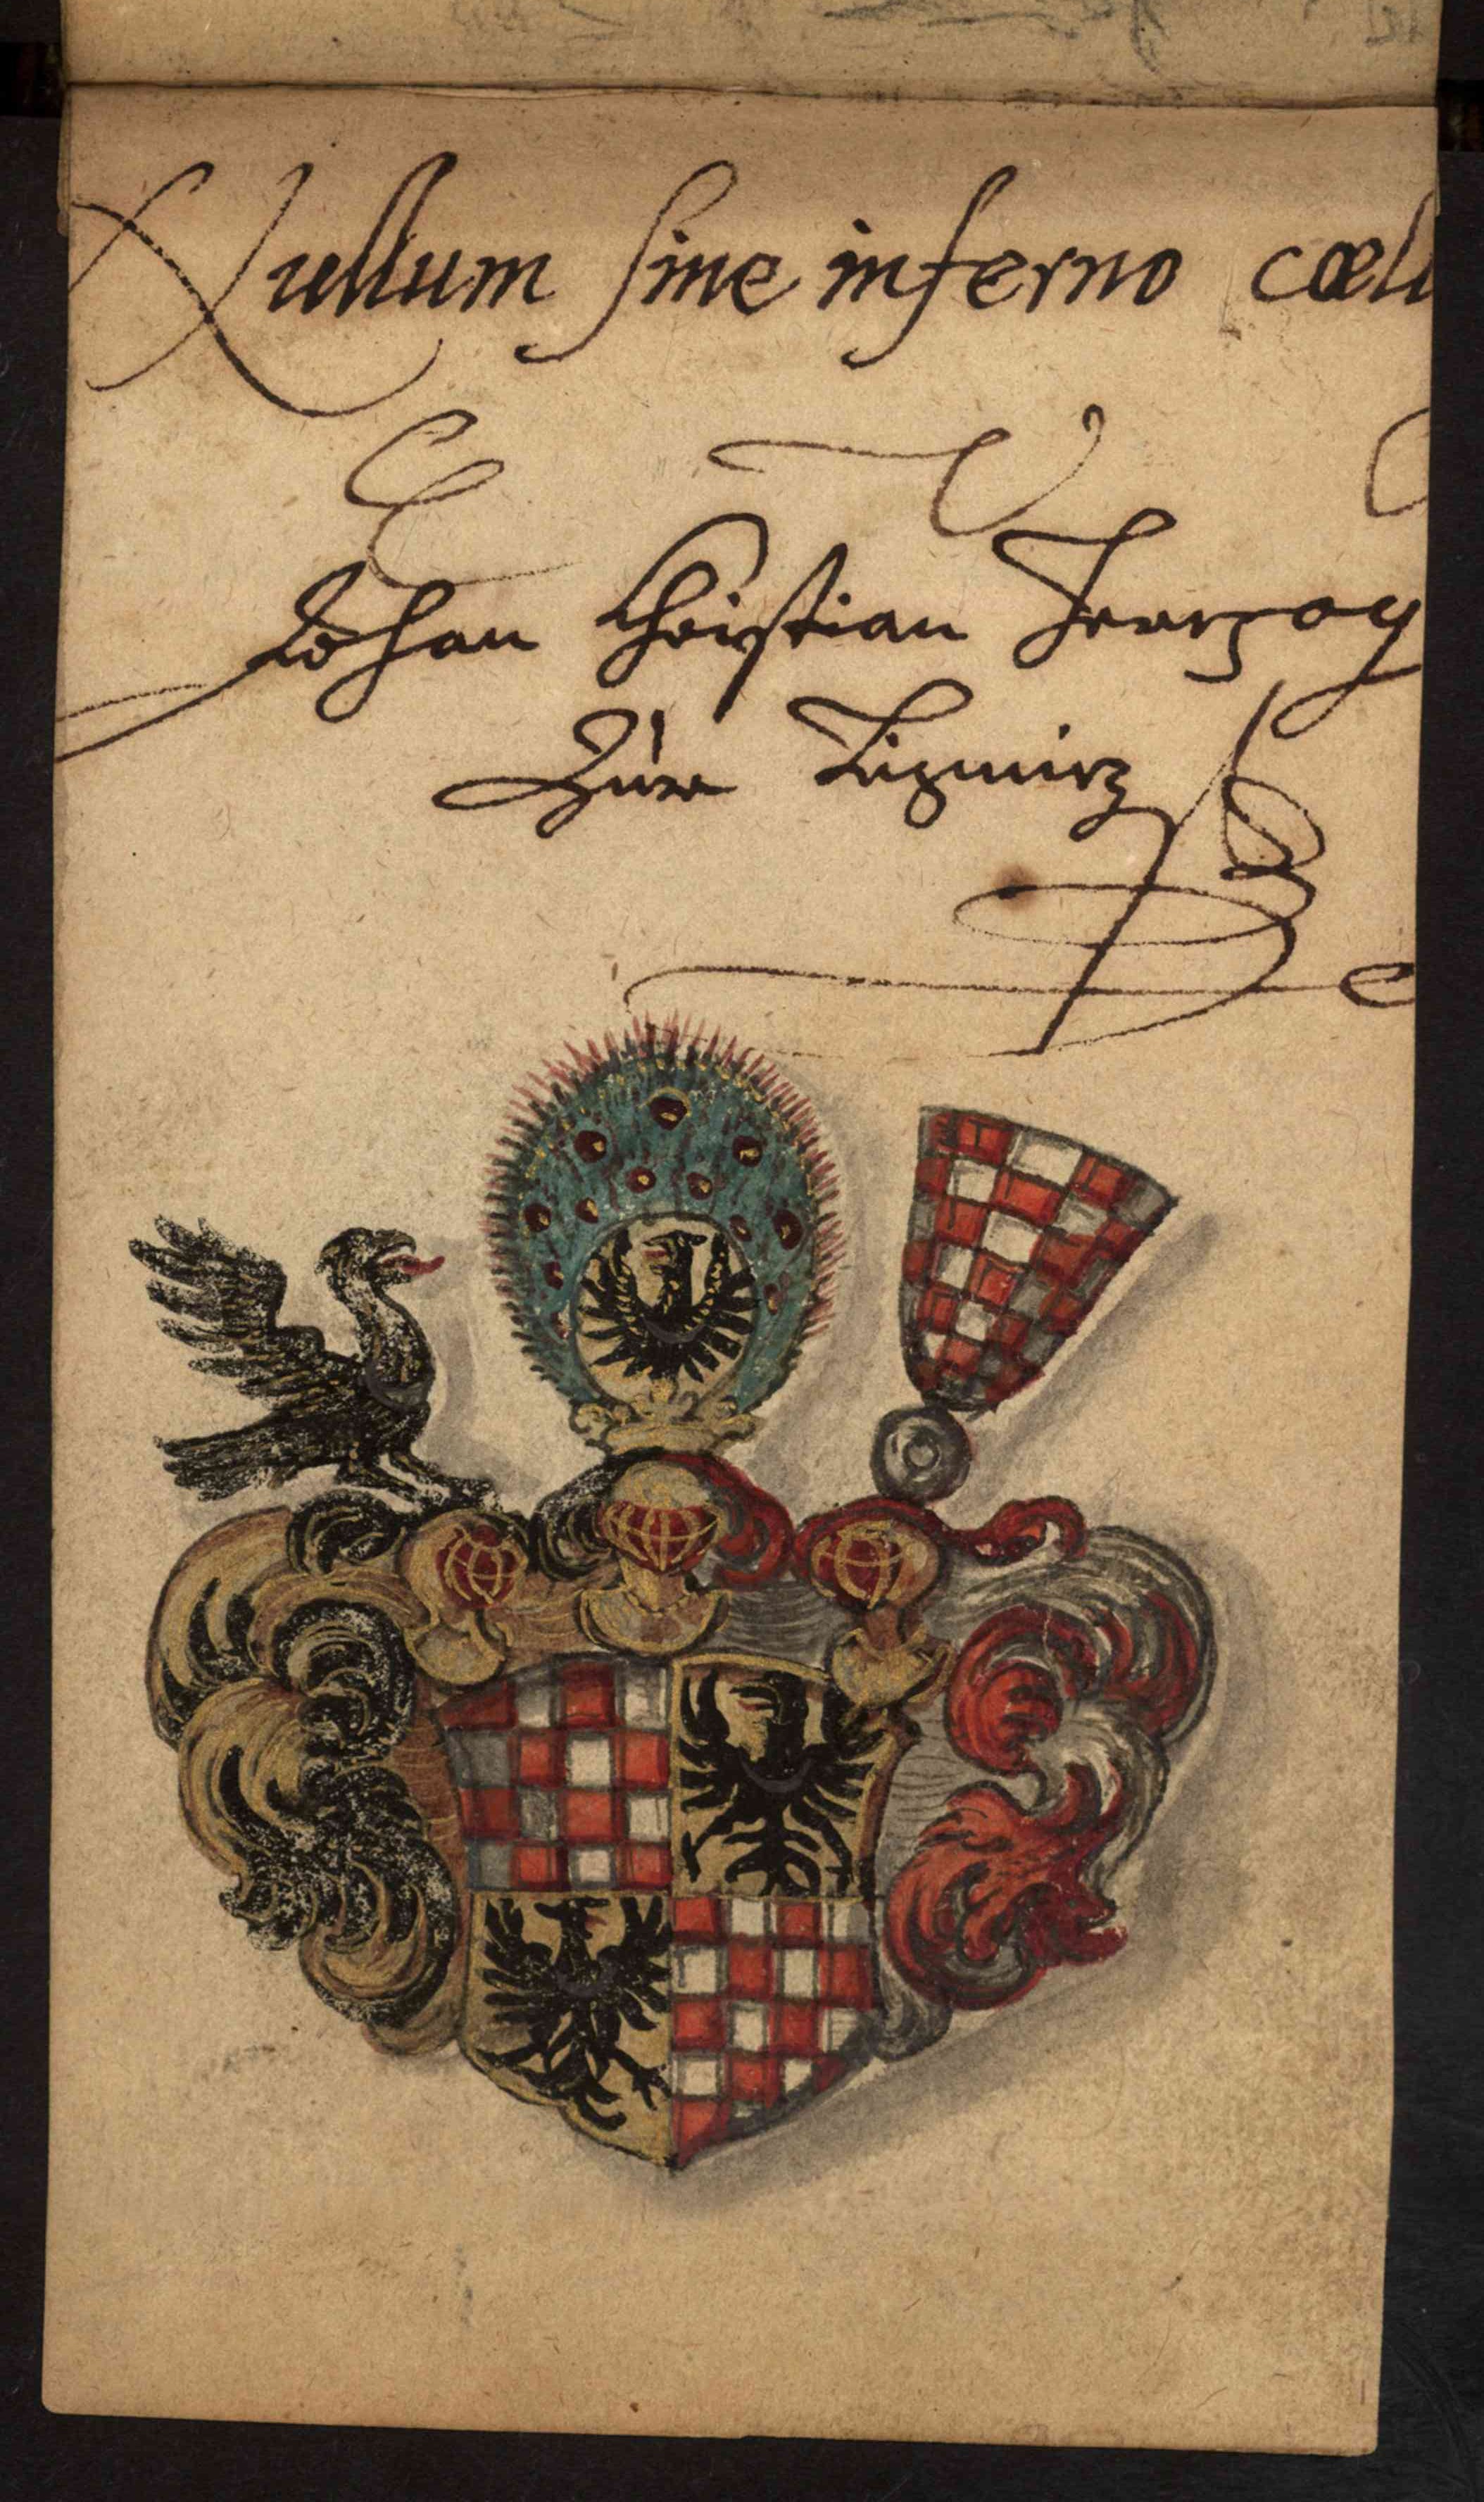 Nullum sine inferno cœlu
Johan Christian Hertzog
Zur Lignitz